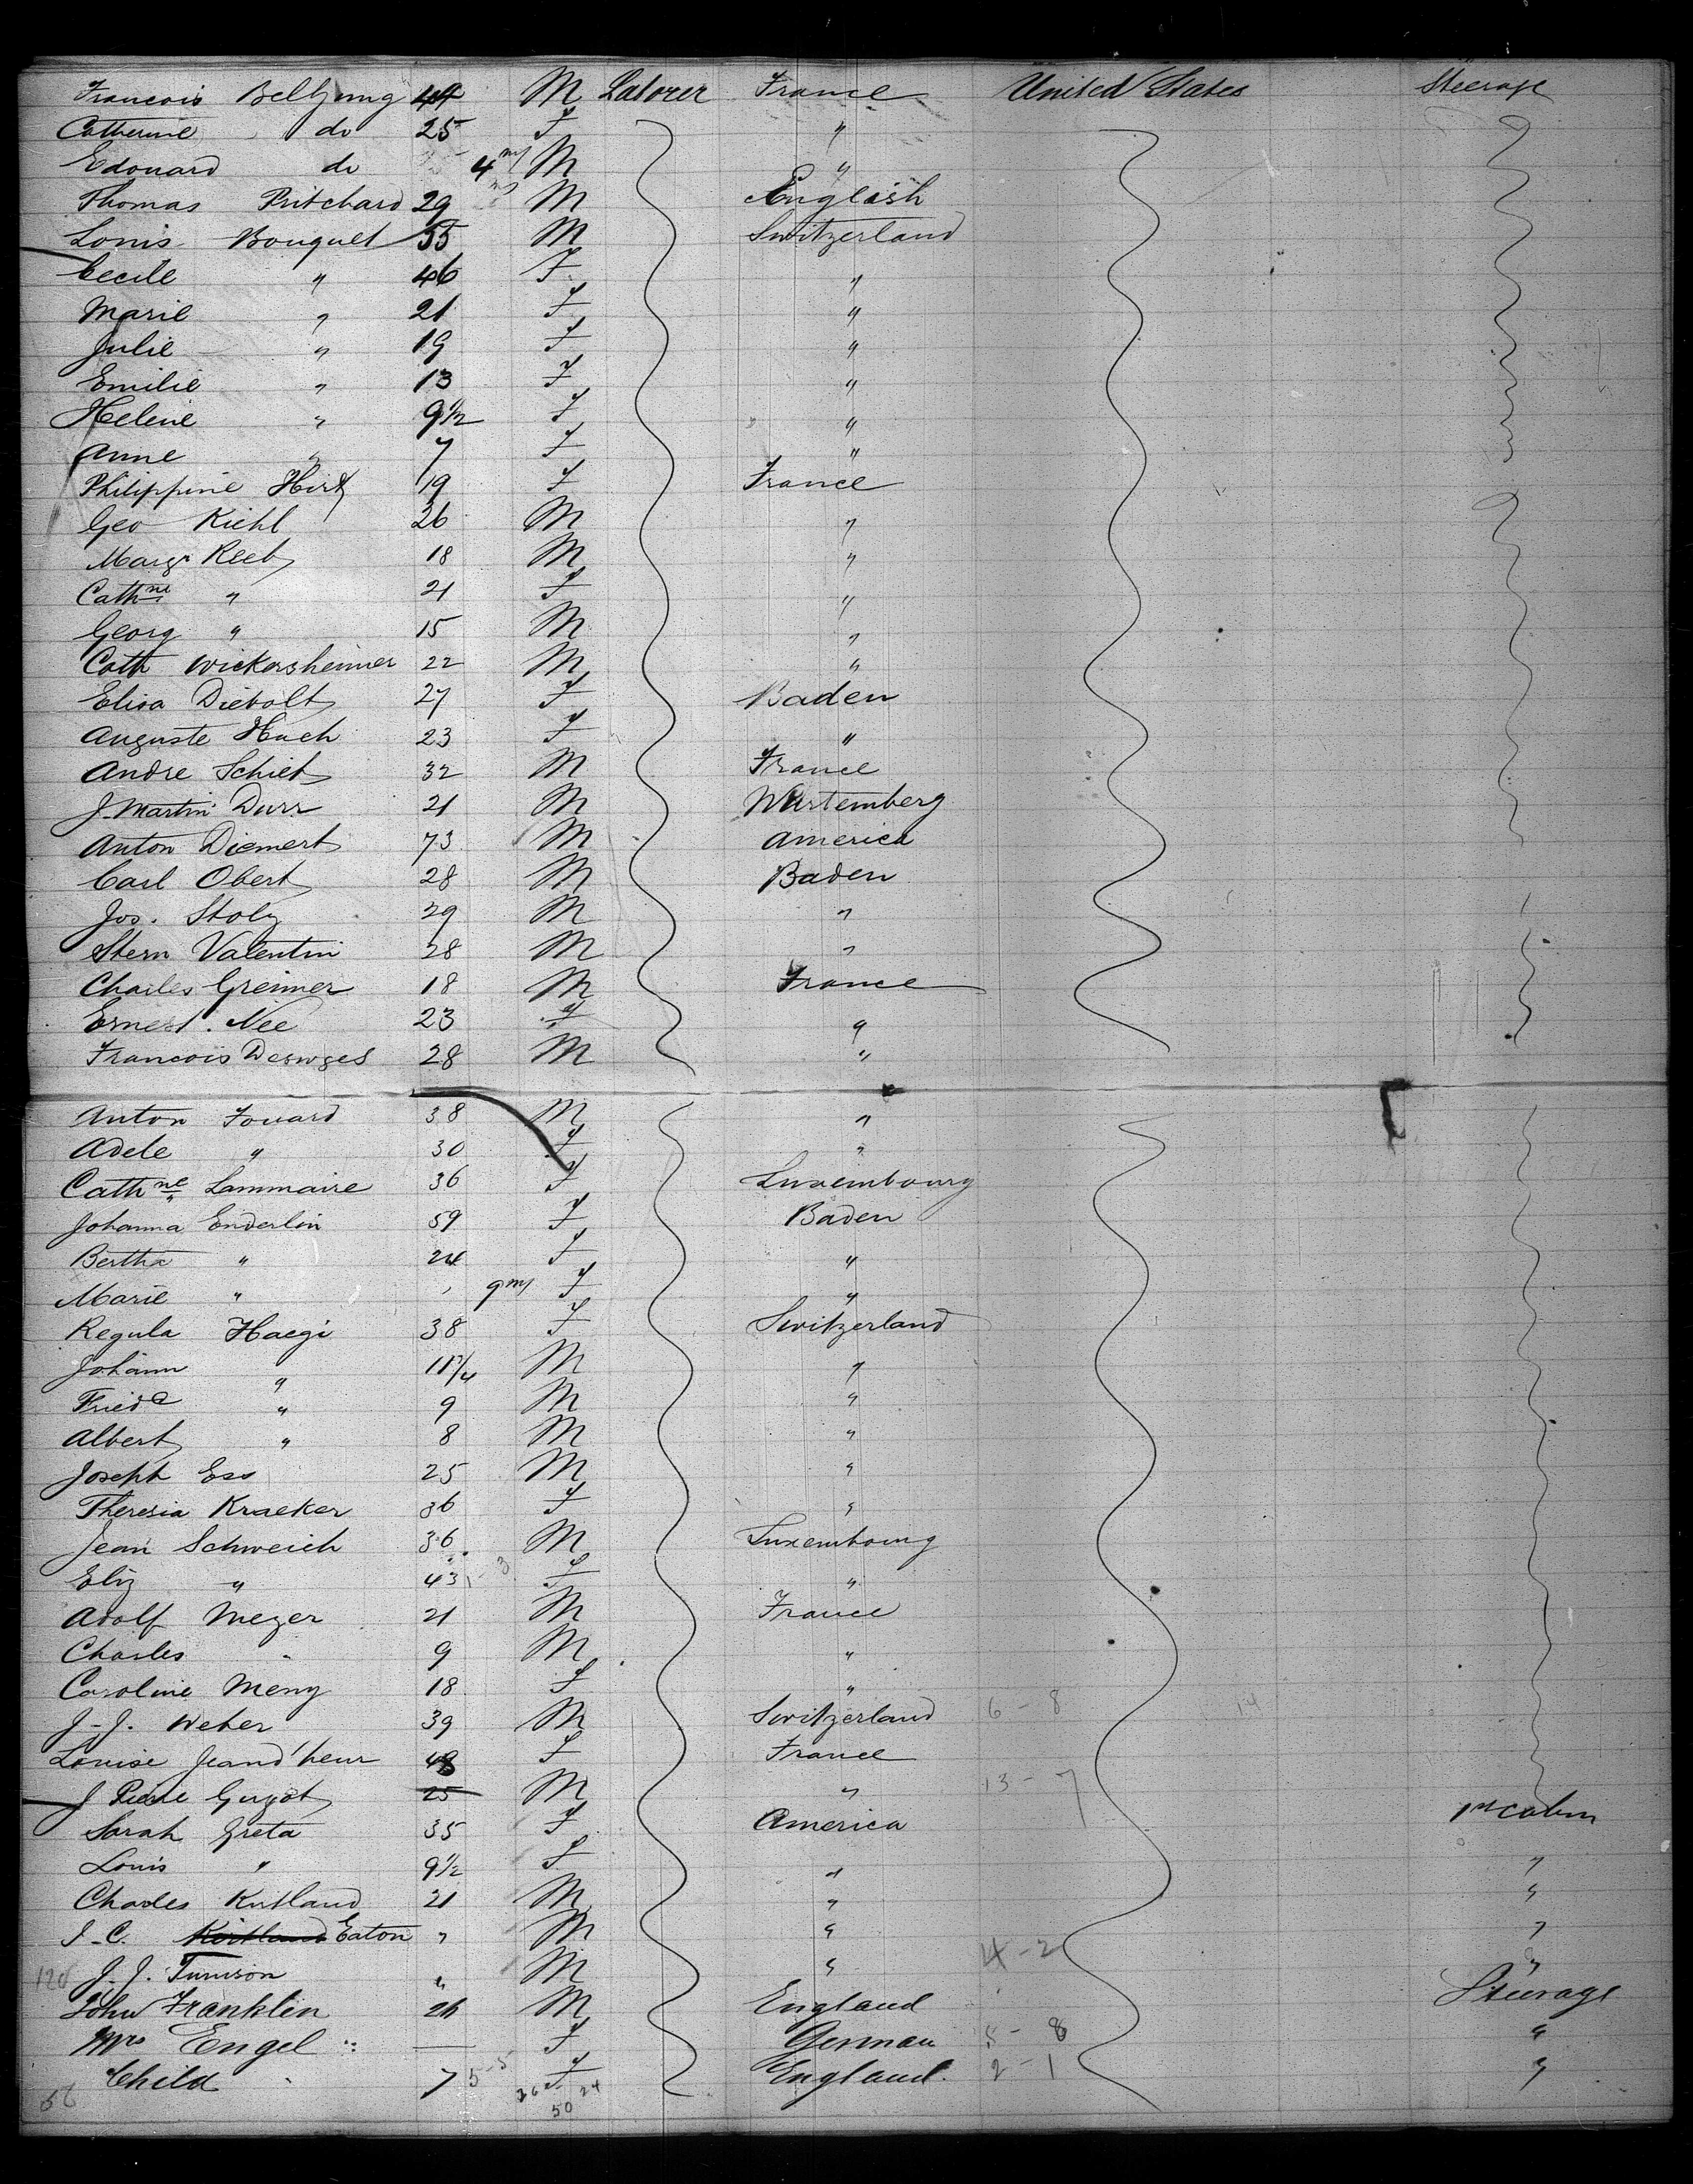 Francois Beltzung 44 M Laborer France United States Steerage
Catherine do 25 F "
Edouard do 4 m/ M "
Thomas Pritchard 29 M English
Louis Bouquet 55 M Switzerland
Cecile " 46 F "
Marie " 21 F "
Julie " 19 F "
Emilie " 13 F "
Helene " 9 1/2 F "
Anne " 7 F "
Philippine 19 F France
Geo Kiehl 26 M "
Margr Reeb 18 M "
Cathne " 21 F "
Georg " 15 M "
Cath Wickersheimer 22 M "
Elisa Diebolt 27 F Baden
Auguste Huch 23 F "
Andre Schieb 32 M France
J. Martin Durr 21 M Wurtemberg
Anton Diemert 73 M America
Carl Obert 28 M Baden
Jos. Stolz 29 M "
Stern Valentin 28 M "
Charles Greiner 18 M France
Ernest. Nee 23 F "
Francois 28 M "
Anton Fouard 38 M "
Adele " 30 F "
Cathne Lammaire 36 F Luxembourg
Johanna Enderlin 59 F Baden
Bertha " 24 F "
Marie " 9 m/ F "
Regula Haegi 38 F Switzerland
Johann " 11 M "
Frieda " 9 M "
Albert " 8 M "
Joseph Ess 25 M "
Theresia Kraeker 36 F "
Jean Schweich 36 M Luxembourg
Eliz " 43 F "
Adolf Meyer 21 M France
Charles " 9 M "
Caroline Meny 18 F "
J-J. Weber 39 M Switzerland 6 - 8 14
Louise Jeand'heur 48 F France
J Pierre Guyot 25 M " 13 - 7
Sarah Greta 35 F America 1st Cabin
Louis " 9 1/2 F " "
Charles Kirtland 21 M " "
J-C. Kirtland Eaton " M " "
120 J. J. Tunison " M " 4 - 2 "
John Franklin 26 M England Steerage
Mrs Engel — F German 5 - 8 "
Child 7 5-5 F England. 2 - 1 "
56 26 24
50